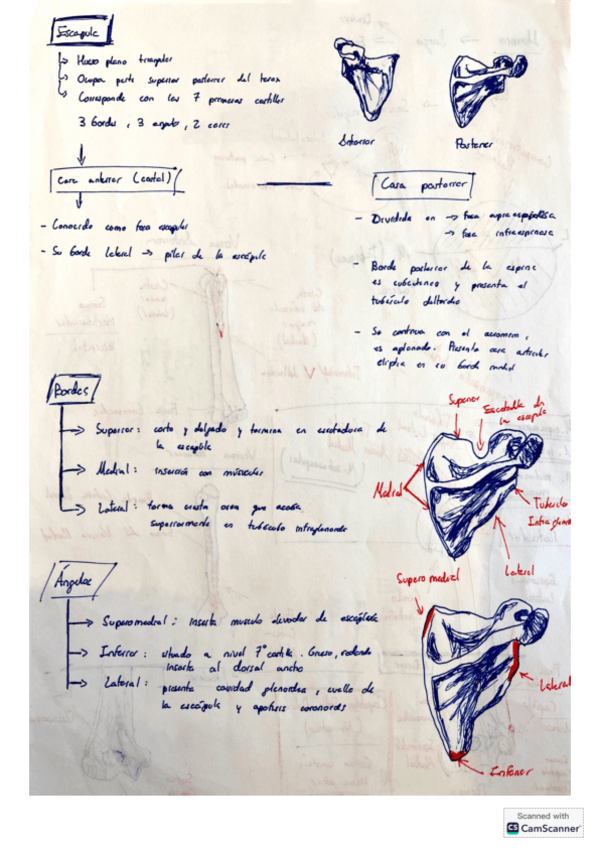 Escapula
Hueso plano triangular
Ocupa parte superior posterior del torax
Corresponde con las 7 primeras costillas
3 bordes, 3 angulos, 2 caras
Anterior
Posterior
Cara anterior (costal)
Cara posterior
- Conocida como fosa escapular
- Su borde lateral → pilar de la escápula
- Dividida en → fosa supraespinosa
→ fosa infraespinosa
- Borde posterior de la espina
es subcutaneo y presenta el
tubérculo deltoideo
- Se continua con el acromion,
es aplanado. Presenta cara articular
eliptica en su borde medial
Bordes
Superior: corto y delgado y termina en escotadura de
la escapula
Medial: inserción con músculos
Lateral: forma cresta osea que acaba
superiormente en tubérculo infraglenoideo
Superior
Escotadura de
la escapula
Medial
Tuberculo
Infraglenoi
Lateral
Ángulos
Superomedial: inserta musculo elevador de escápula
Inferior: situado a nivel 7ª costilla. Grueso, redondo
inserta al dorsal ancho
Lateral: presenta cavidad glenoidea, cuello de
la escápula y apofisis coronoides
Supero medial
Lateral
Inferior
Scanned with
CS CamScanner